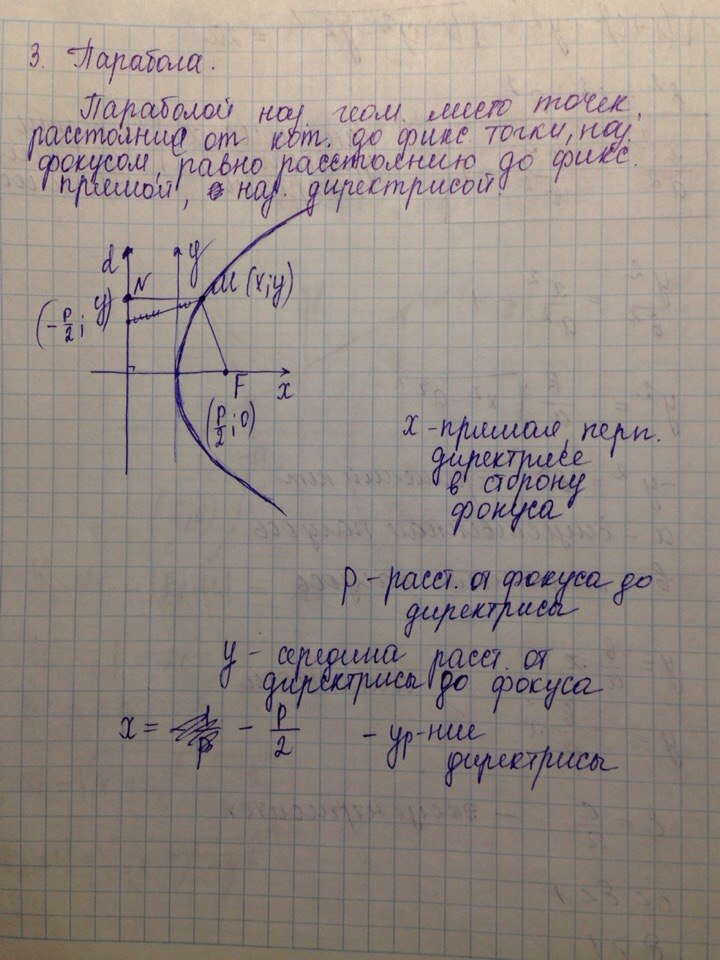 3. Парабола.
Параболой наз. геом. место точек,
расстояние от кот. до фикс точки, наз.
фокусом, равно расстоянию до фикс.
прямой, наз. директрисой.
d
y
N
M (x;y)
(-p/2; y)
F
x
(p/2; 0)
x - прямая, перп.
директрисе
в сторону
фокуса
p - расст. от фокуса до
директрисы
y - середина расст. от
директрисы до фокуса
x = - p/2 - ур-ние
директрисы